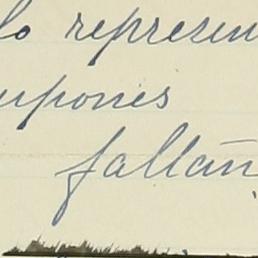 lo represen
upones
fallan